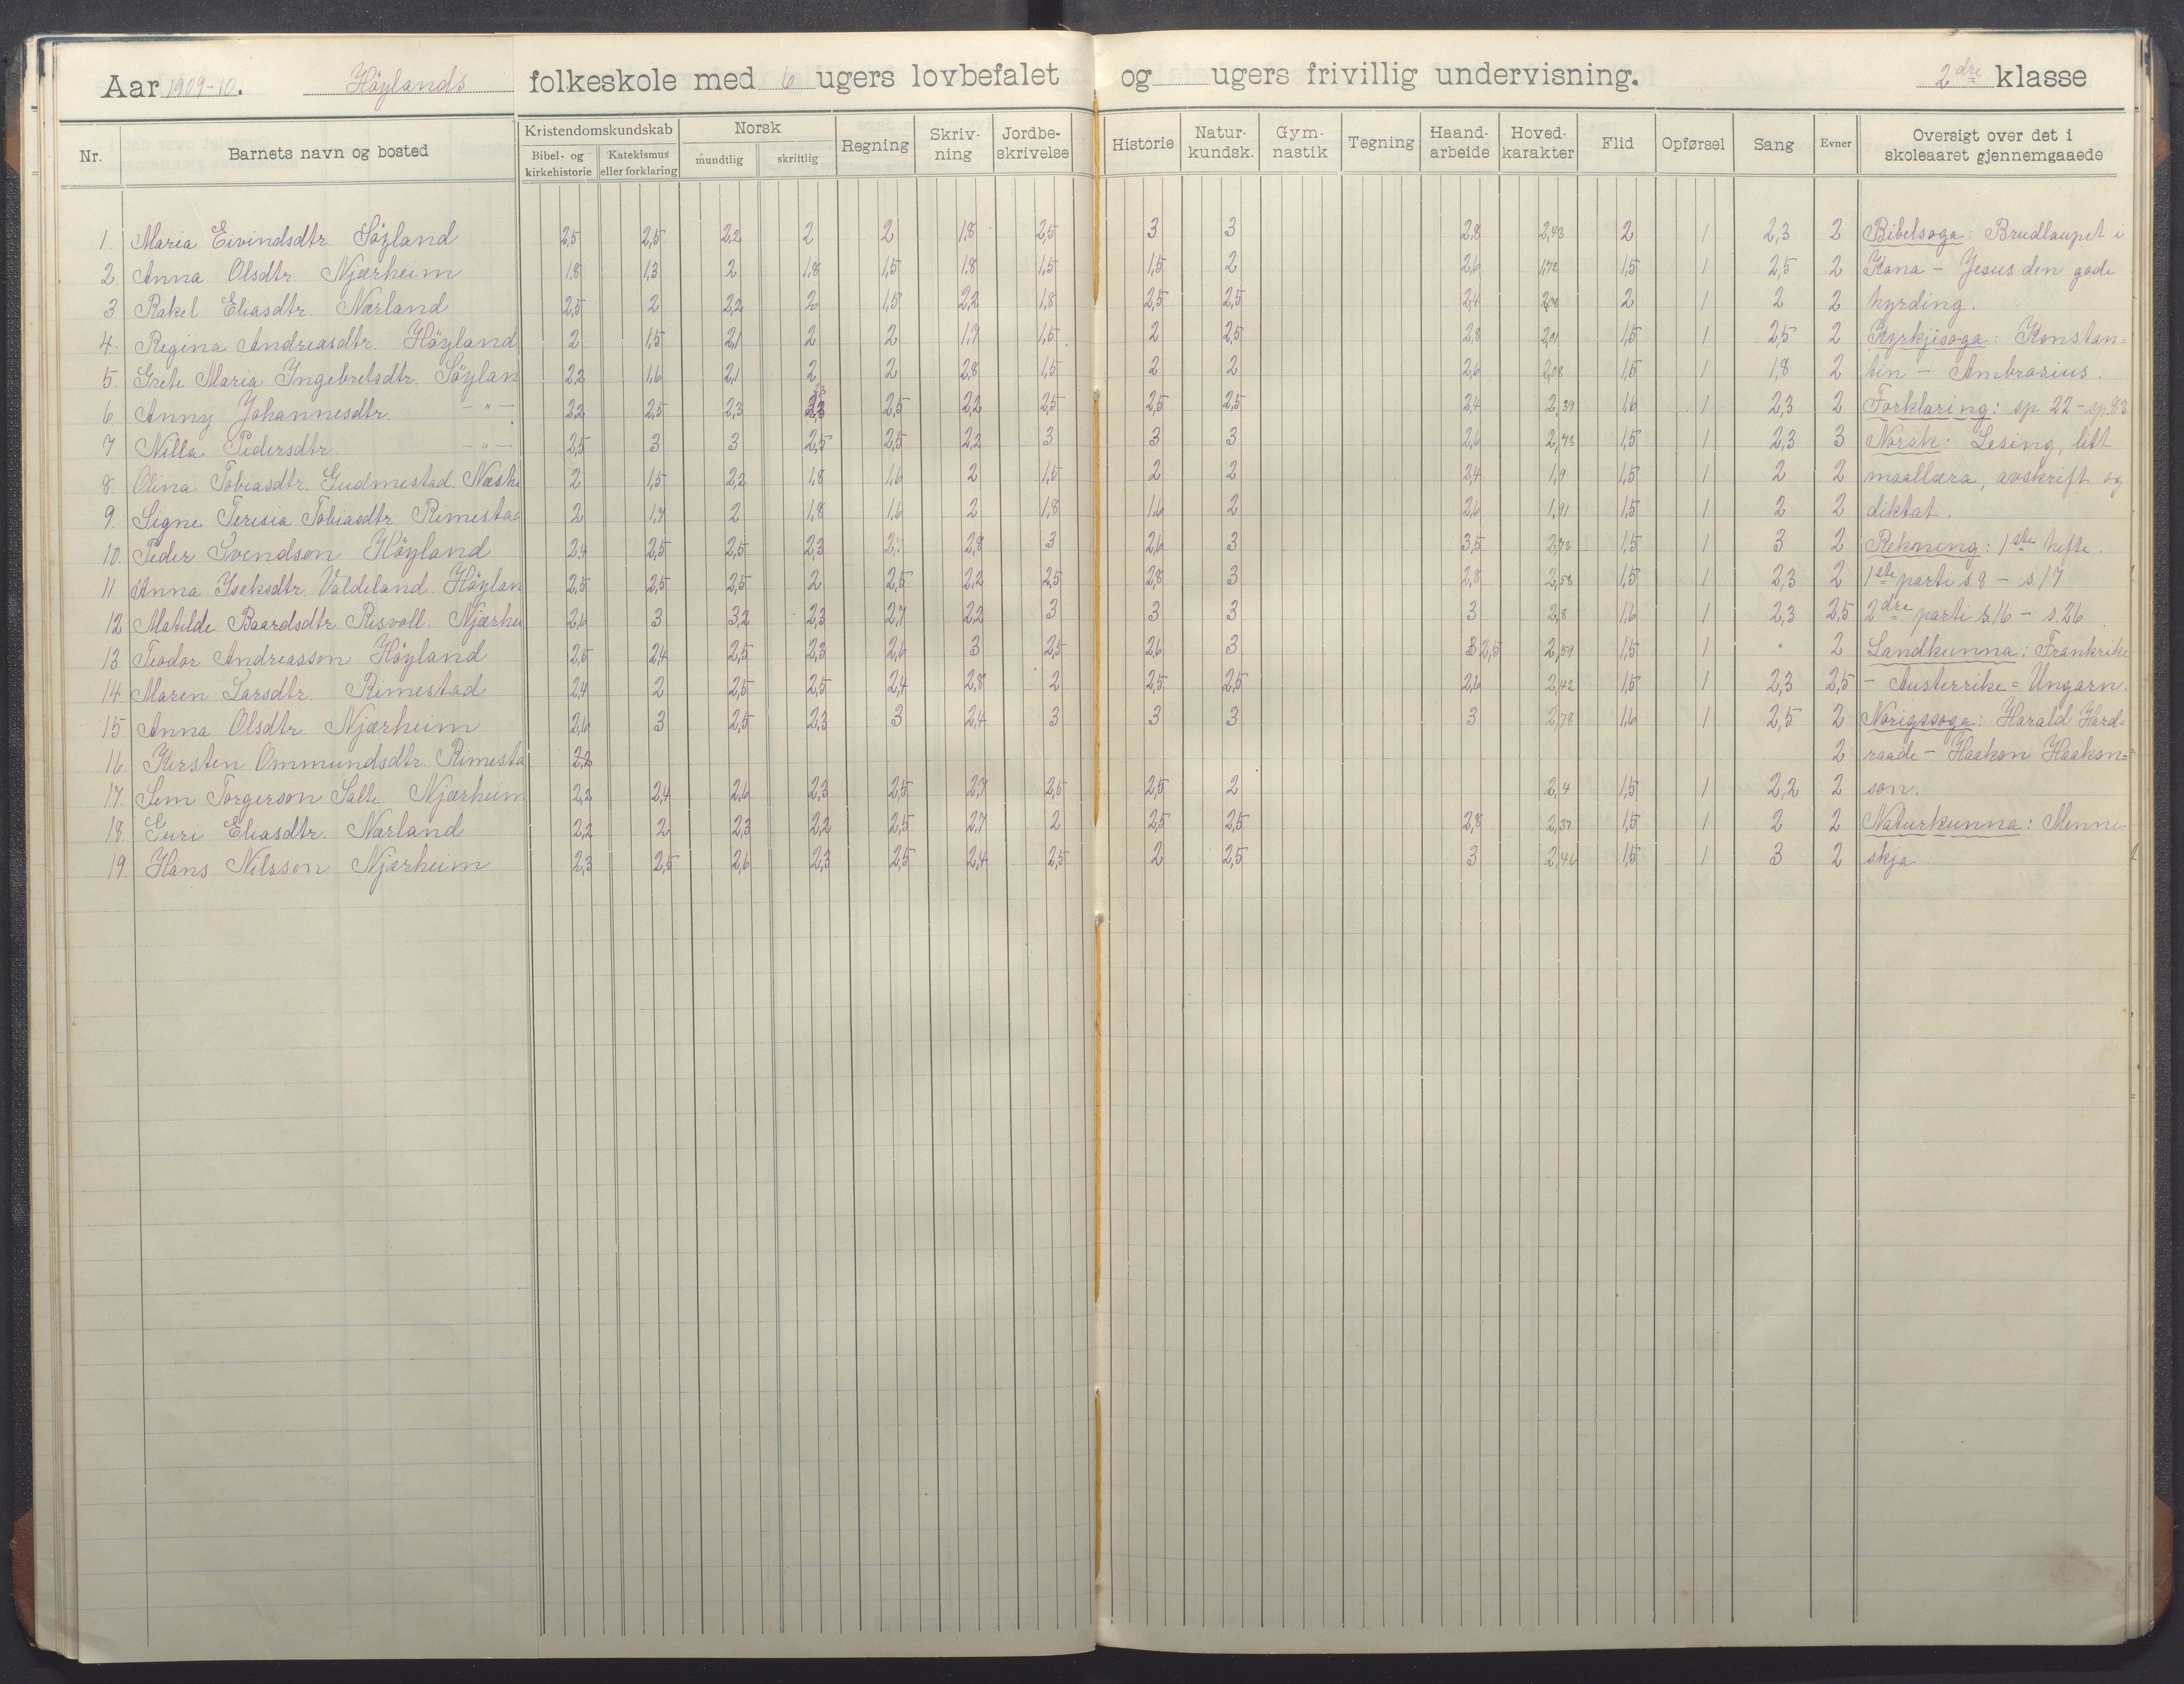 Aar 1909-10. Höylands folkeskole med 6 ugers lovbefalet og ugers frivillig undervisning. 2dre klasse
Nr. Barnets navn og bosted Kristendomskundskab Bibel- og kirkehistorie Katekismus eller forklaring Norsk mundtlig skriftlig Regning Skriv-ning Jordbe-skrivelse Historie Natur-kundsk. Gym-nastik Tegning Haand-arbeide Hoved-karakter Flid Opførsel Sang Evner Oversigt over det i skoleaaret gjennemgaaede
1. Maria Eivindsdtr. Söyland 2,5 2,5 2,2 2 2 1,8 2,5 3 3 2,8 2,43 2 1 2,3 2 Bibelsoga: Brudlaupet i
2 Anna Olsdtr. Njærheim 1,8 1,3 2 1,8 1,5 1,8 1,5 1,5 2 2,6 1,78 1,5 1 2,5 2 Kana - Jesus den gode
3 Rakel Eliasdtr. Nærland 2,5 2 2,2 2 1,5 2,2 1,8 2,5 2,5 2,4 2 1 2 2 hyrding.
4. Regina Andreasdtr. Höyland 2 1,5 2,1 2 2 1,7 1,5 2 2,5 2,8 2,01 1,5 1 2,5 2 Kyrkjesoga: Konstan-
5. Grete Maria Ingebretsdtr. Söylan 2,2 1,6 2,1 2 2 2,8 1,5 2 2 2,6 2,08 1,5 1 1,8 2 tin - Ambrosius.
6. Anny Johannesdtr. -"- 2,2 2,5 2,3 2,3 2,5 2,2 2,5 2,5 2,5 2,4 2,39 1,6 1 2,3 2 Forklaring: sp. 22 - sp. 83
7 Nilla Pedersdtr. -"- 2,5 3 3 2,5 2,5 2,2 3 3 3 2,6 2,73 1,5 1 2,3 3 Norsk: Lesing, litt
8 Olina Tobiasdtr. Gudmestad 2 1,5 2,2 1,8 1,6 2 1,5 2 2 2,4 1,9 1,5 1 2 2 maallæra, avskrift og
9. Signe Teresia Tobiasdtr. Rimestad 2 1,7 2 1,8 1,6 2 1,8 1,6 2 2,6 1,91 1,5 1 2 2 diktat.
10. Peder Svendson Höyland 2,4 2,5 2,5 2,3 2,7 2,8 3 2,6 3 3,5 2,73 1,5 1 3 2 Rekning: 1ste hefte.
11. Anna Iseksdtr. Valdeland. Höylan 2,5 2,5 2,5 2 2,5 2,2 2,5 2,8 3 2,8 2,53 1,5 1 2,3 2 1ste parti s 8 - s. 17
12 Matilde Baardsdtr. Risvoll Njærhei 2,6 3 3,2 2,3 2,7 2,2 3 3 3 3 2,8 1,6 1 2,3 2,5 2dre parti s. 16 - s. 26.
13 Teodor Andreasson Höyland 2,5 2,4 2,5 2,3 2,6 3 2,5 2,6 3 2,5 2,59 1,5 1 " 2 Landkunna: Frankrike
14 Maren Larsdtr. Rimestad 2,4 2 2,5 2,5 2,4 2,8 2 2,5 2,5 2,6 2,42 1,5 1 2,3 2,5 - Austerrike = Ungarn.
15. Anna Olsdtr. Njærheim 2,6 3 2,5 2,3 3 2,4 3 3 3 3 2,78 1,6 1 2,5 2 Norigssoga: Harald Hard-
16. Kirsten Ommundsdtr. Rimesta 2,2 2 raade - Haakon Haakon=
17. Sem Torgerson Salte. Njærheim 2,2 2,4 2,6 2,3 2,5 2,7 2,5 2,5 2 2,4 1,5 1 2,2 2 son.
18. Guri Eliasdtr. Nærland 2,2 2 2,3 2,2 2,5 2,7 2 2,5 2,5 2,8 2,37 1,5 1 2 2 Naturkunna: Menne-
19 Hans Nilsson Njærheim 2,3 2,5 2,6 2,3 2,5 2,4 2,5 2 2,5 3 2,46 1,5 1 3 2 skja